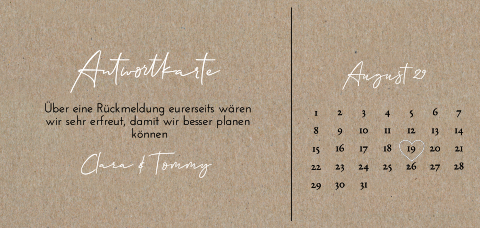 Antwortkarte
Über eine Rückmeldung eurerseits wären
wir sehr erfreut, damit wir besser planen
können
Clara & Tommy
August 29
1 2 3 4 5 6 7
8 9 10 11 12 13 14
15 16 17 18 19 20 21
22 23 24 25 26 27 28
29 30 31